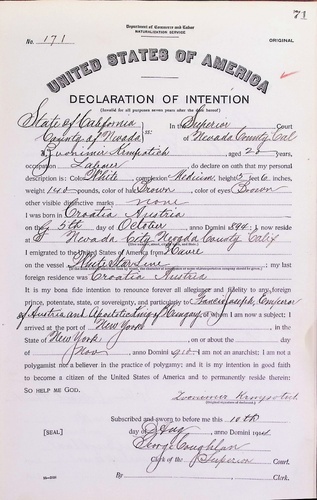 71
Department of Commerce and Labor
NATURALIZATION SERVICE
No. 171
ORIGINAL
UNITED STATES OF AMERICA
DECLARATION OF INTENTION
(Invalid for all purposes seven years after the date hereof)
State of California
County of Nevada
ss:
In the Superior Court
of Nevada County Cal
I, Zvonimir aged 20 years,
occupation Laborer, do declare on oath that my personal
description is: Color White, complexion Medium, height 5 feet 6 inches,
weight 140 pounds, color of hair Brown, color of eyes Brown
other visible distinctive marks none
I was born in Croatia Austria
on the 5th day of October, anno Domini 1894; I now reside
at Nevada City Nevada County Cal
I emigrated to the United States of America from Havre
on the vessel White Star Line; my last
foreign residence was Croatia Austria
It is my bona fide intention to renounce forever all allegiance and fidelity to any foreign
prince, potentate, state, or sovereignty, and particularly to Francis Joseph, Emperor
of Austria and Apostolic King of Hungary, of whom I am now a subject; I
arrived at the port of New York, in the
State of New York, on or about the day
of Nov, anno Domini 1910; I am not an anarchist; I am not a
polygamist nor a believer in the practice of polygamy; and it is my intention in good faith
to become a citizen of the United States of America and to permanently reside therein:
SO HELP ME GOD.
Zvonimir
Subscribed and sworn to before me this 10th
[SEAL]
day of anno Domini 1914
George Coughlan
Clerk of the Superior Court.
By , Clerk.